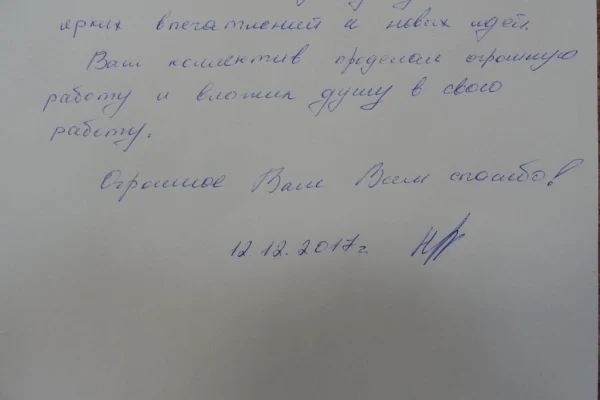 ярких впечатлений и новых идей.
Ваш коллектив проделал огромную
работу и вложил душу в свою
работу.
Огромное Вам Всем спасибо!
12.12.2017г.